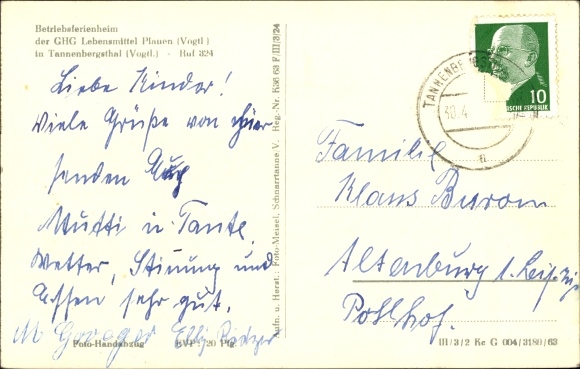 Betriebsferienheim
der GHG Lebensmittel Plauen (Vogtl.)
in Tannenbergsthal (Vogtl.) - Ruf 324
Liebe Kinder!
Viele Grüße von hier
senden Aug
Mutti u. Tante.
Wetter, Stimung und
Essen sehr gut.
Foto-Handabzug EVP: 20 Pfg.
Aufn. u. Herst.: Foto-Meisel, Schnarrtanne V. Reg.-Nr. K36 63 F III/3/24
TANNENBE
30.4
DEUTSCHE REPUBLIK
10
Familie
Klaus
Altenburg b. Leipzig
Posthof.
III/3/2 Ke G 004/3180/63